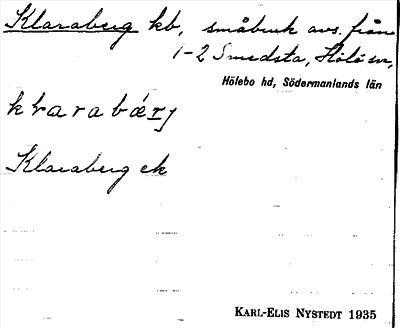 Klaraberg kb, småbruk avs. från
1-2 Smedsta, Hölö sn,
Hölebo hd, Södermanlands län
Klaraberg ek
KARL-ELIS NYSTEDT 1935